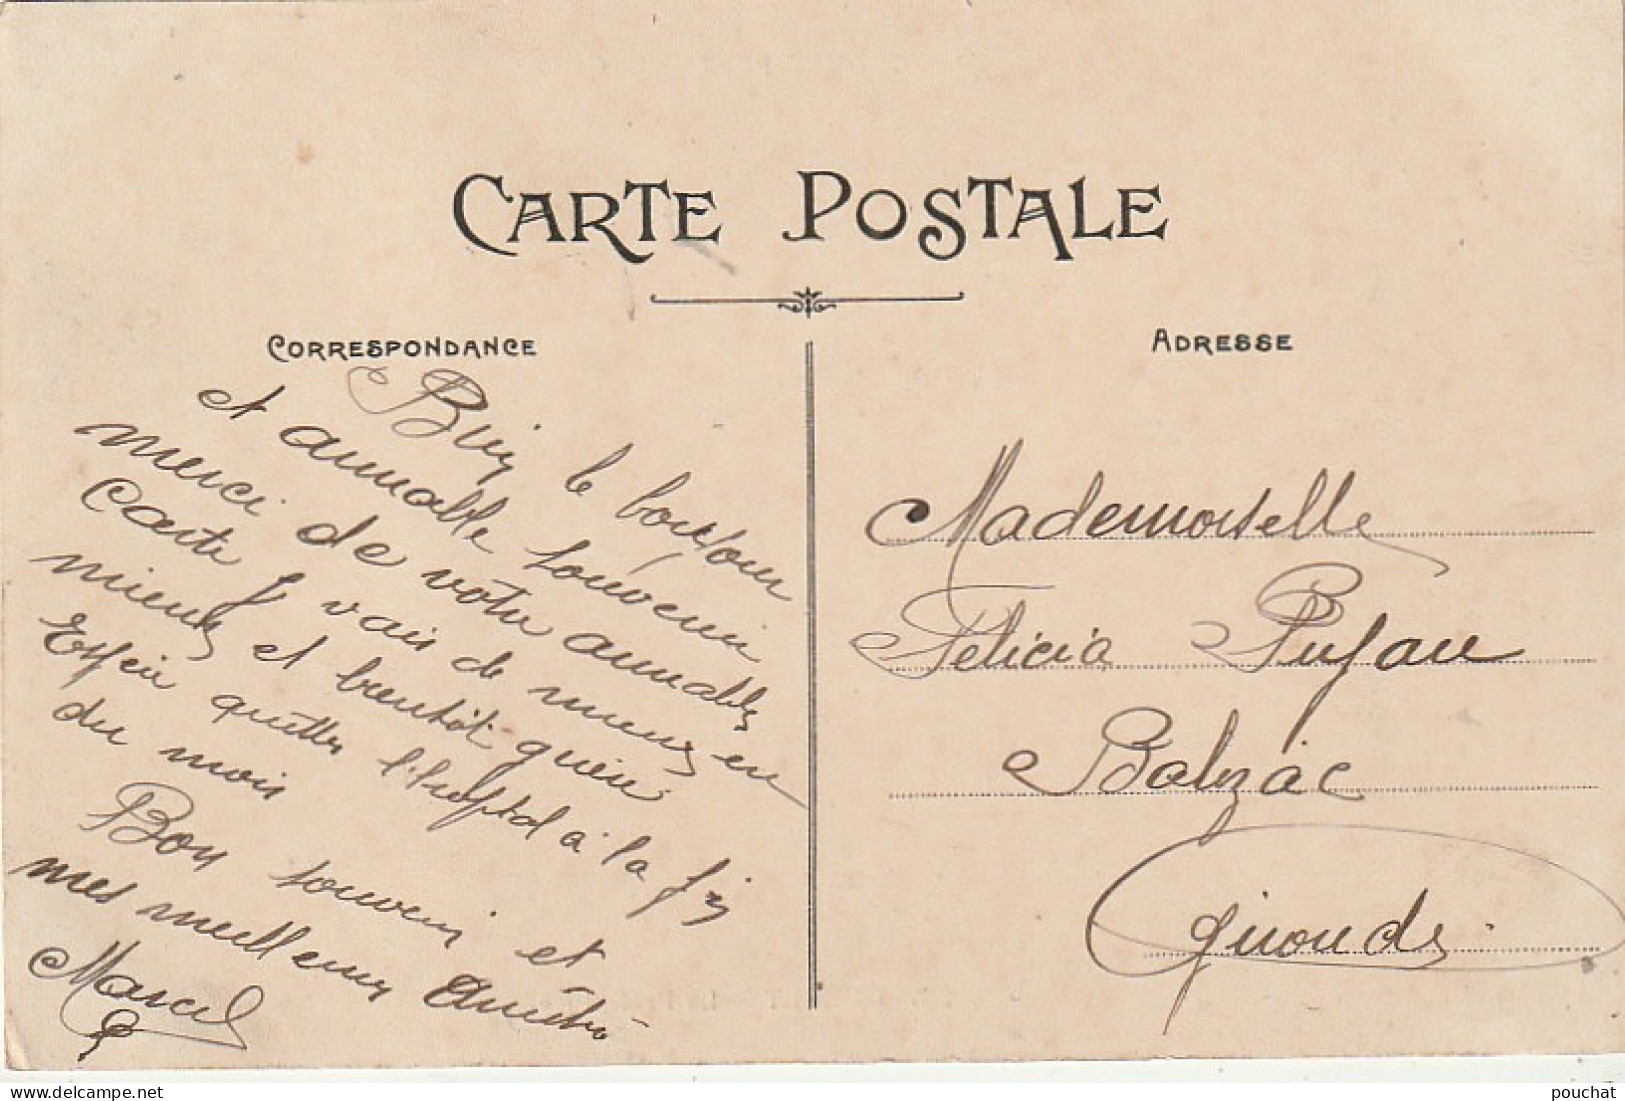 CARTE POSTALE
CORRESPONDANCE
ADRESSE
Bien le bonjour
et aimable souvenir
merci de votre aimable
Carte Je vais de mieux en
mieux et bientôt guéri
Espère quitter l'hopital à la fin
du mois
Bon souvenir et
mes meilleures Amitiés
Marcel
Mademoiselle
Félicia Pujau
Balizac
Gironde
pouchat